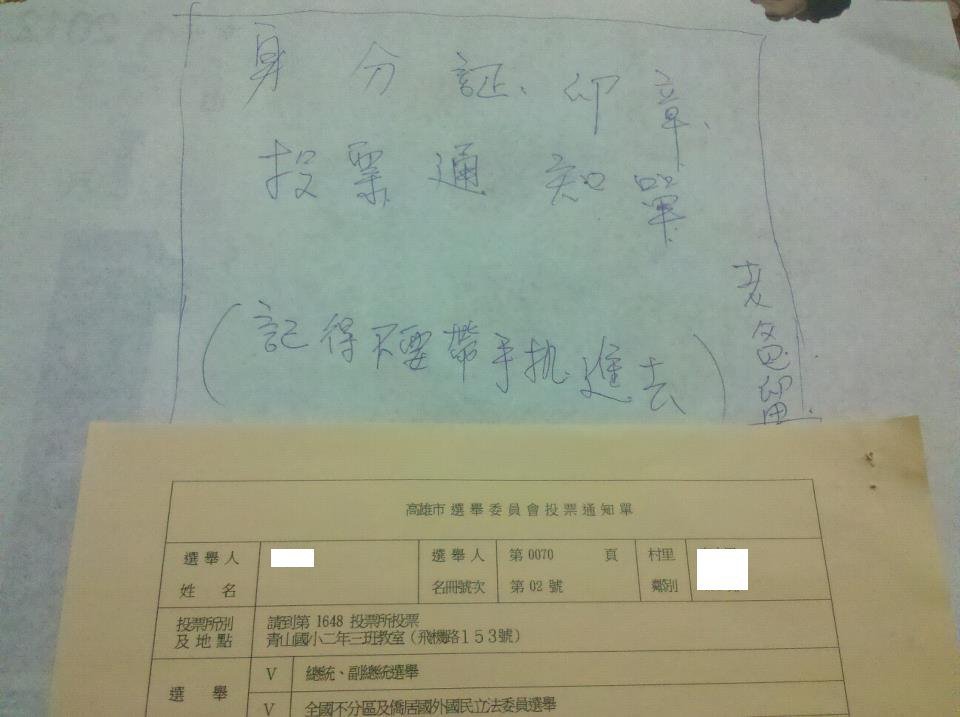 身分証、印章、
投票通知單
(記得不要帶手机進去)
老爸留
高雄市選舉委員會投票通知單
選舉人姓名
選舉人名冊號次
第0070頁
第02號
村里鄰別
投票所別及地點
請到第1648投票所投票
青山國小二年三班教室(飛機路153號)
選舉
V 總統、副總統選舉
V 全國不分區及僑居國外國民立法委員選舉